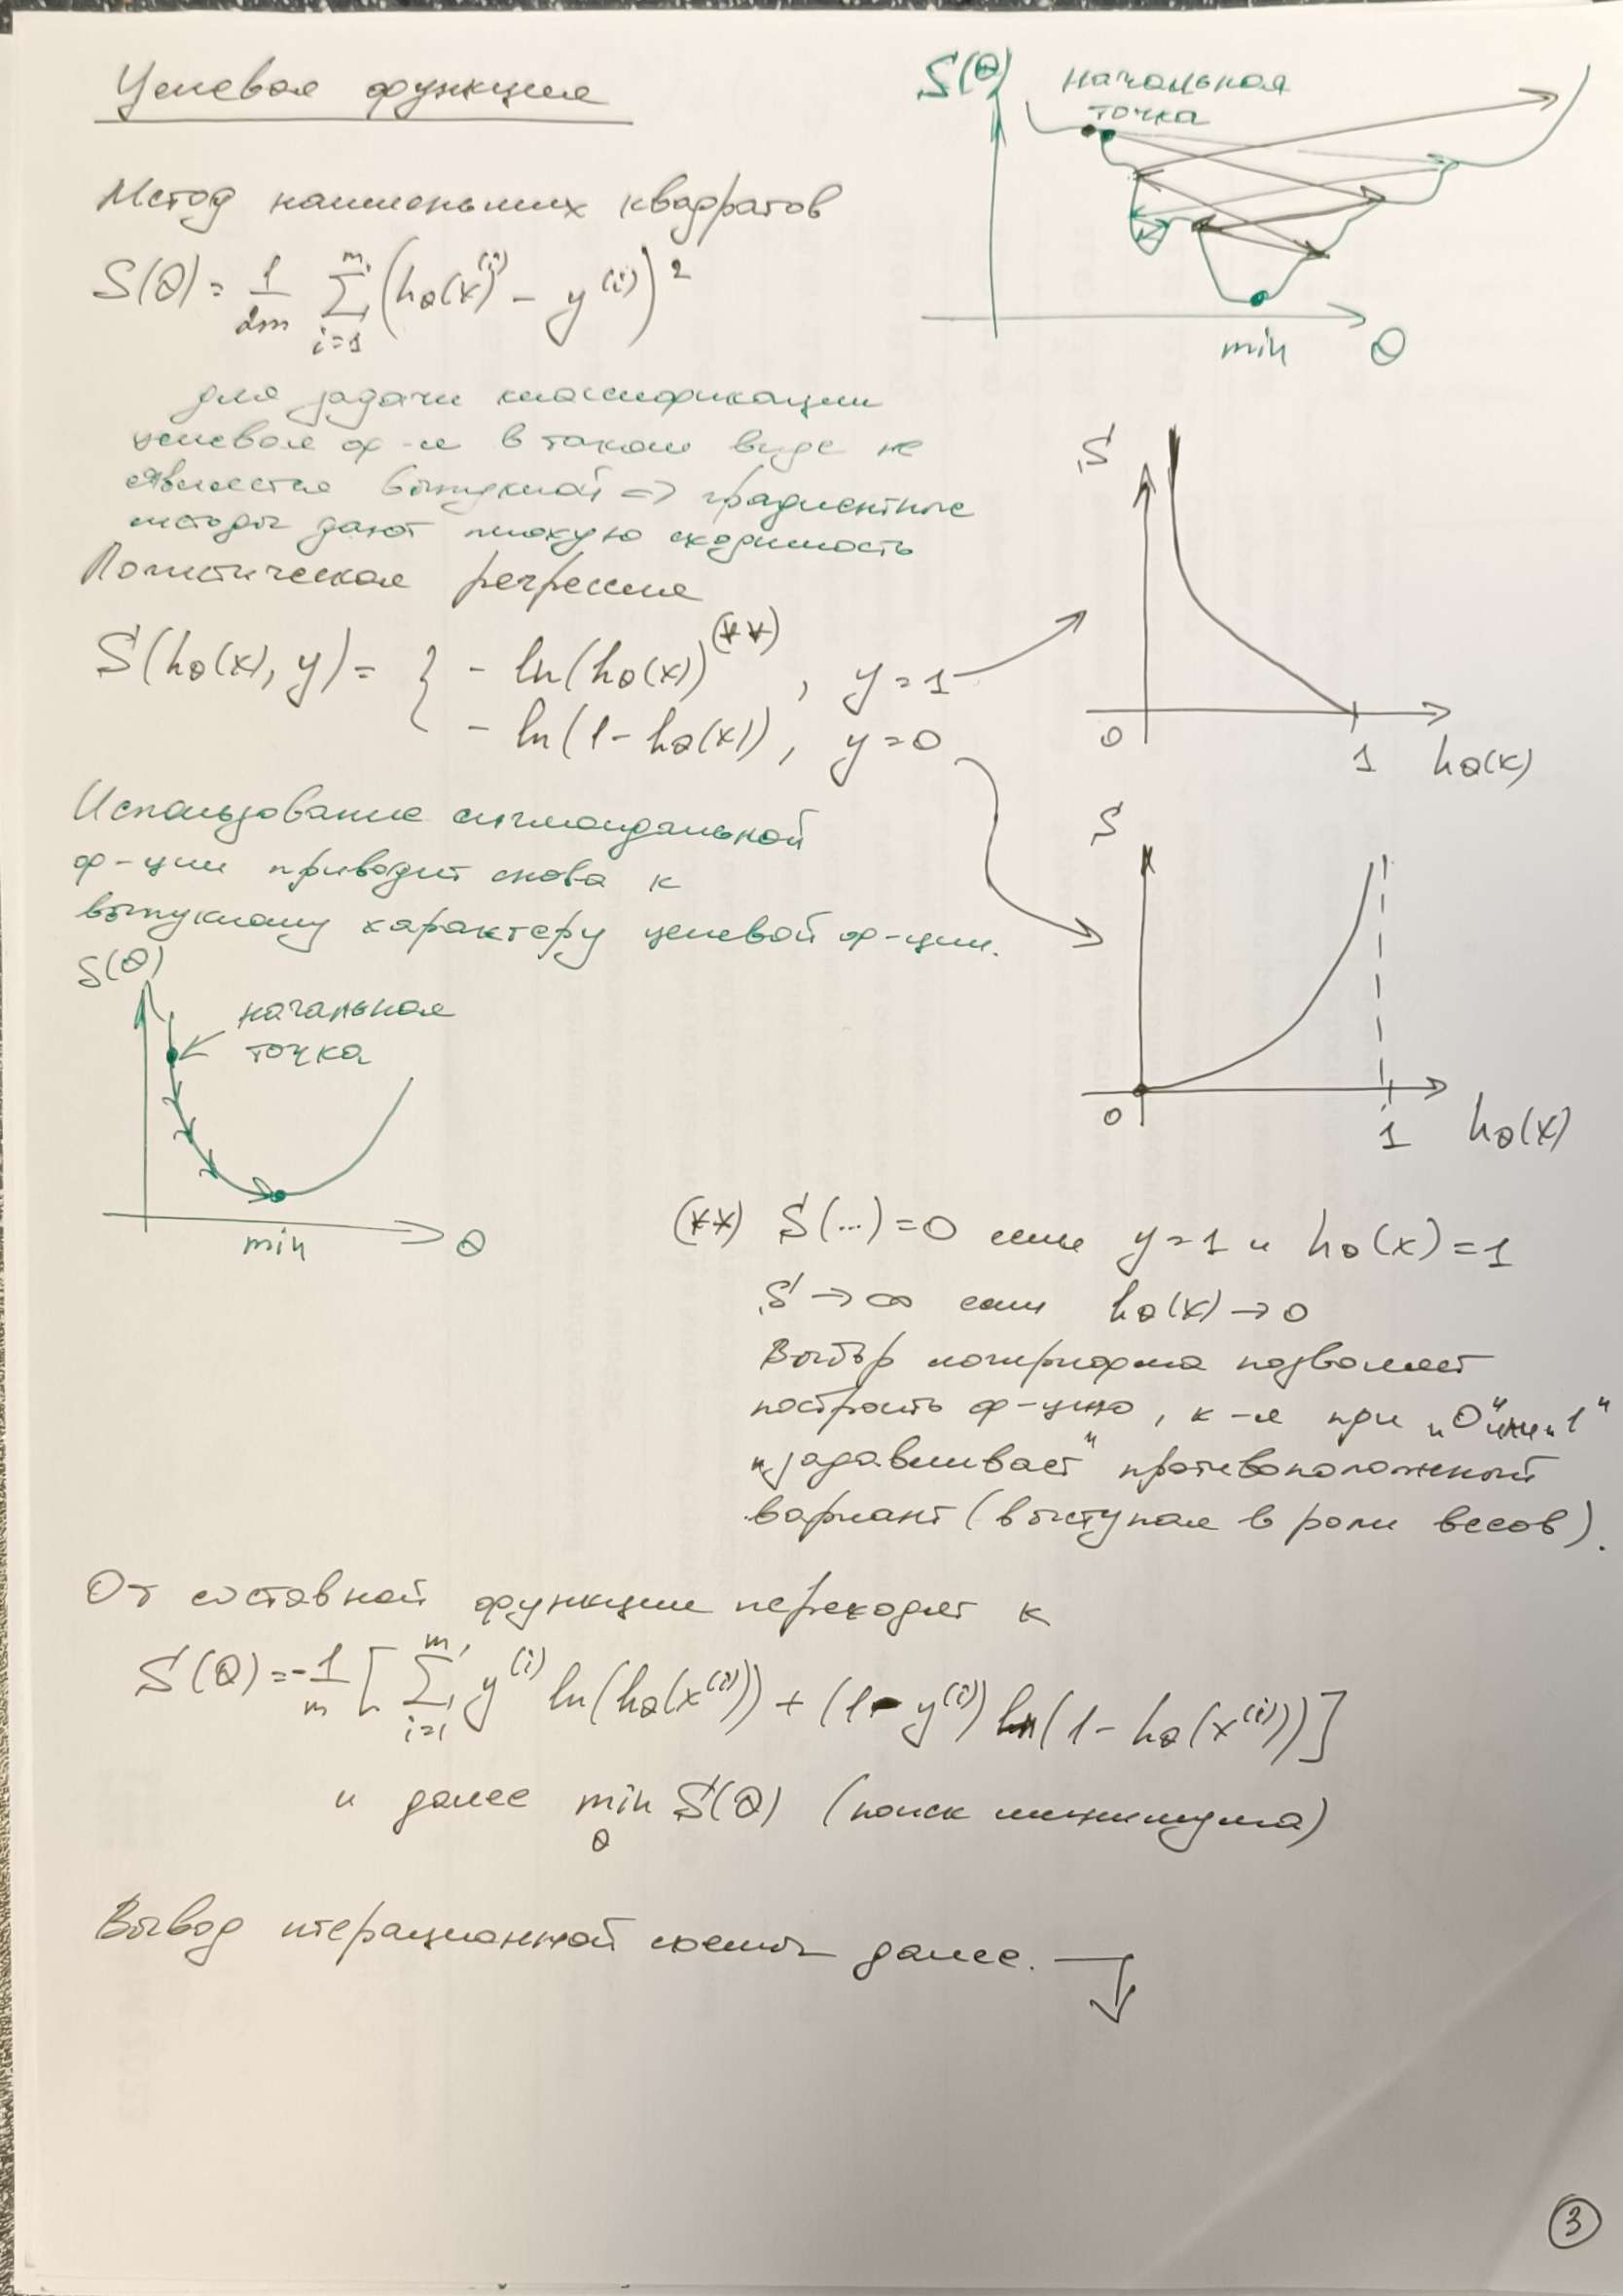 Целевая функция
S(θ) начальная
точка
min θ
Метод наименьших квадратов
S(θ) = 1/2m ∑ᵢ₌₁ᵐ (hθ(x⁽ⁱ⁾) - y⁽ⁱ⁾)²
для задачи классификации
целевая ф-я в таком виде не
является выпуклой => градиентные
методы дают плохую сходимость
Логистическая регрессия
S(hθ(x), y) = { - ln(hθ(x))⁽**⁾, y = 1
- ln(1 - hθ(x)), y = 0
S
0 1 hθ(x)
S
0 1 hθ(x)
Использование сигмоидальной
ф-ции приводит снова к
выпуклому характеру целевой ф-ции.
S(θ)
начальная
точка
min θ
(**) S(...) = 0 если y = 1 и hθ(x) = 1
S → ∞ если hθ(x) → 0
Выбор логарифма позволяет
построить ф-цию, к-я при „0" или „1"
„задавливает" противоположный
вариант (выступая в роли весов).
От составной функции переходят к
S(θ) = -1/m [∑ᵢ₌₁ᵐ y⁽ⁱ⁾ ln(hθ(x⁽ⁱ⁾)) + (1 - y⁽ⁱ⁾) ln(1 - hθ(x⁽ⁱ⁾))]
и далее min S(θ) (поиск минимума)
θ
Вывод итерационной схемы далее.
3